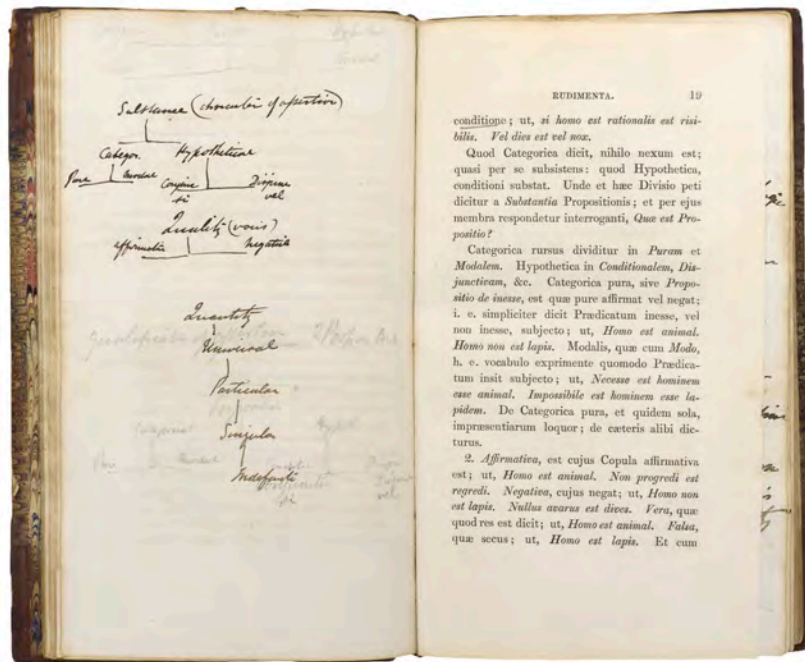 Substance (character of assertion)
Categor. Hypothetical
Pure Modal Conjunc Disjunc
si vel
Quality (vocis)
affirmative negative
Quantity
Universal
Particular
Singular
Indefinite
RUDIMENTA. 19
conditione; ut, si homo est rationalis est risi-
bilis. Vel dies est vel nox.
Quod Categorica dicit, nihilo nexum est;
quasi per se subsistens: quod Hypothetica,
conditioni substat. Unde et hæc Divisio peti
dicitur a Substantia Propositionis; et per ejus
membra respondetur interroganti, Quæ est Pro-
positio?
Categorica rursus dividitur in Puram et
Modalem. Hypothetica in Conditionalem, Dis-
junctivam, &c. Categorica pura, sive Propo-
sitio de inesse, est quæ pure affirmat vel negat;
i. e. simpliciter dicit Prædicatum inesse, vel
non inesse, subjecto; ut, Homo est animal.
Homo non est lapis. Modalis, quæ cum Modo,
h. e. vocabulo exprimente quomodo Prædica-
tum insit subjecto; ut, Necesse est hominem
esse animal. Impossibile est hominem esse la-
pidem. De Categorica pura, et quidem sola,
impræsentiarum loquor; de cæteris alibi dic-
turus.
2. Affirmativa, est cujus Copula affirmativa
est; ut, Homo est animal. Non progredi est
regredi. Negativa, cujus negat; ut, Homo non
est lapis. Nullus avarus est dives. Vera, quæ
quod res est dicit; ut, Homo est animal. Falsa,
quæ secus; ut, Homo est lapis. Et cum